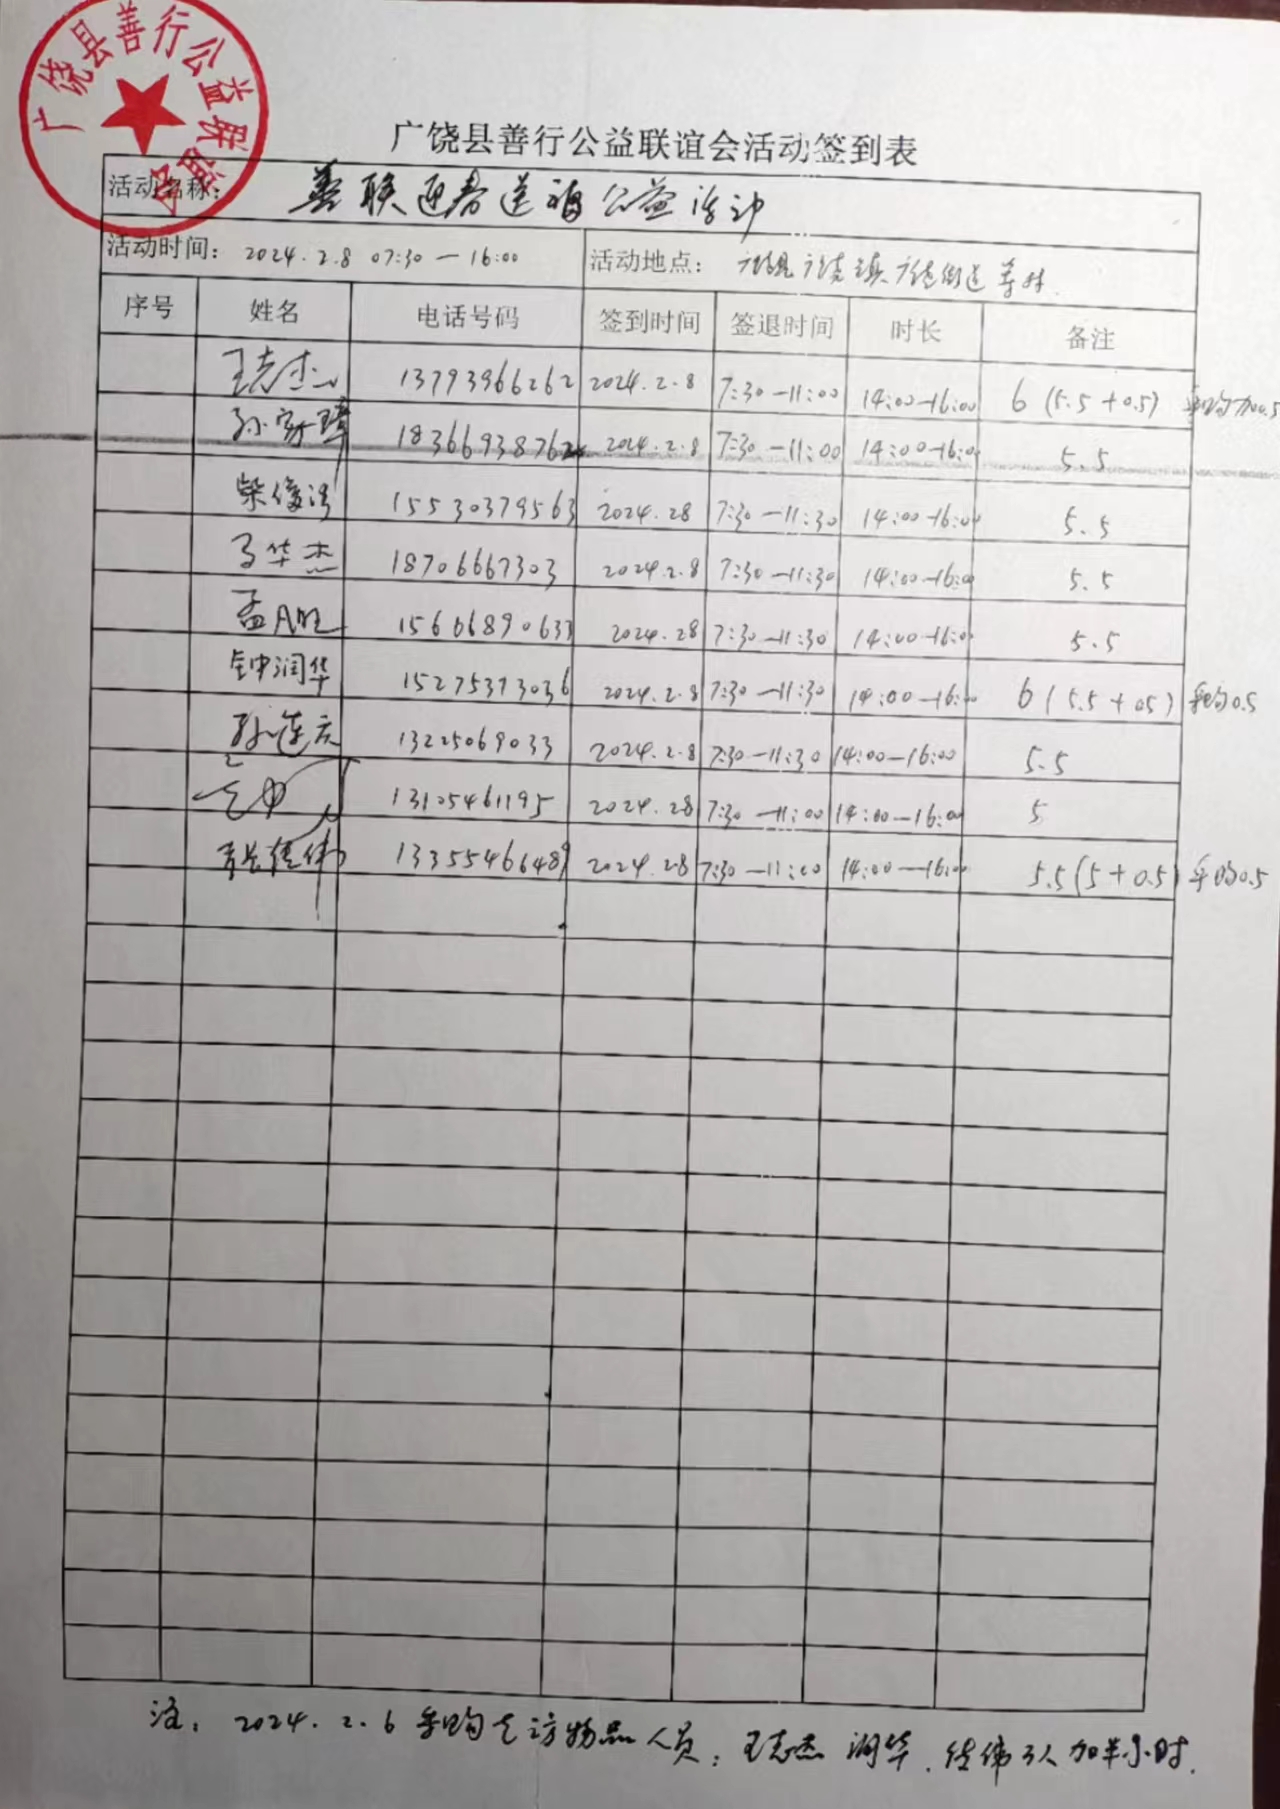 广饶县善行公益联谊会
广饶县善行公益联谊会活动签到表
活动名称： 善联迎春送福公益活动
活动时间： 2024.2.8 07:30—16:00 活动地点： 广饶县广饶镇广饶街道
序号 姓名 电话号码 签到时间 签退时间 时长 备注
王志杰 13793966262 2024.2.8 7:30—11:00 14:00—16:00 6（5.5+0.5） 采购加0.5
孙家璋 18366938762 2024.2.8 7:30—11:00 14:00—16:00 5.5
柴俊涛 15530379563 2024.28 7:30—11:30 14:00—16:00 5.5
华杰 18706667303 2024.2.8 7:30—11:30 14:00—16:00 5.5
孟 15666890633 2024.28 7:30—11:30 14:00—16:00 5.5
钟润华 15275373036 2024.2.8 7:30—11:30 14:00—16:00 6（5.5+05） 采购0.5
孙连庆 13225069033 2024.2.8 7:30—11:30 14:00—16:00 5.5
13105461195 2024.28 7:30—11:00 14:00—16:00 5
佳伟 13355466489 2024.2.8 7:30—11:00 14:00—16:00 5.5(5+0.5) 采购0.5
注：2024.2.6采购走访物品人员：王志杰 润华.佳伟3人加半小时.